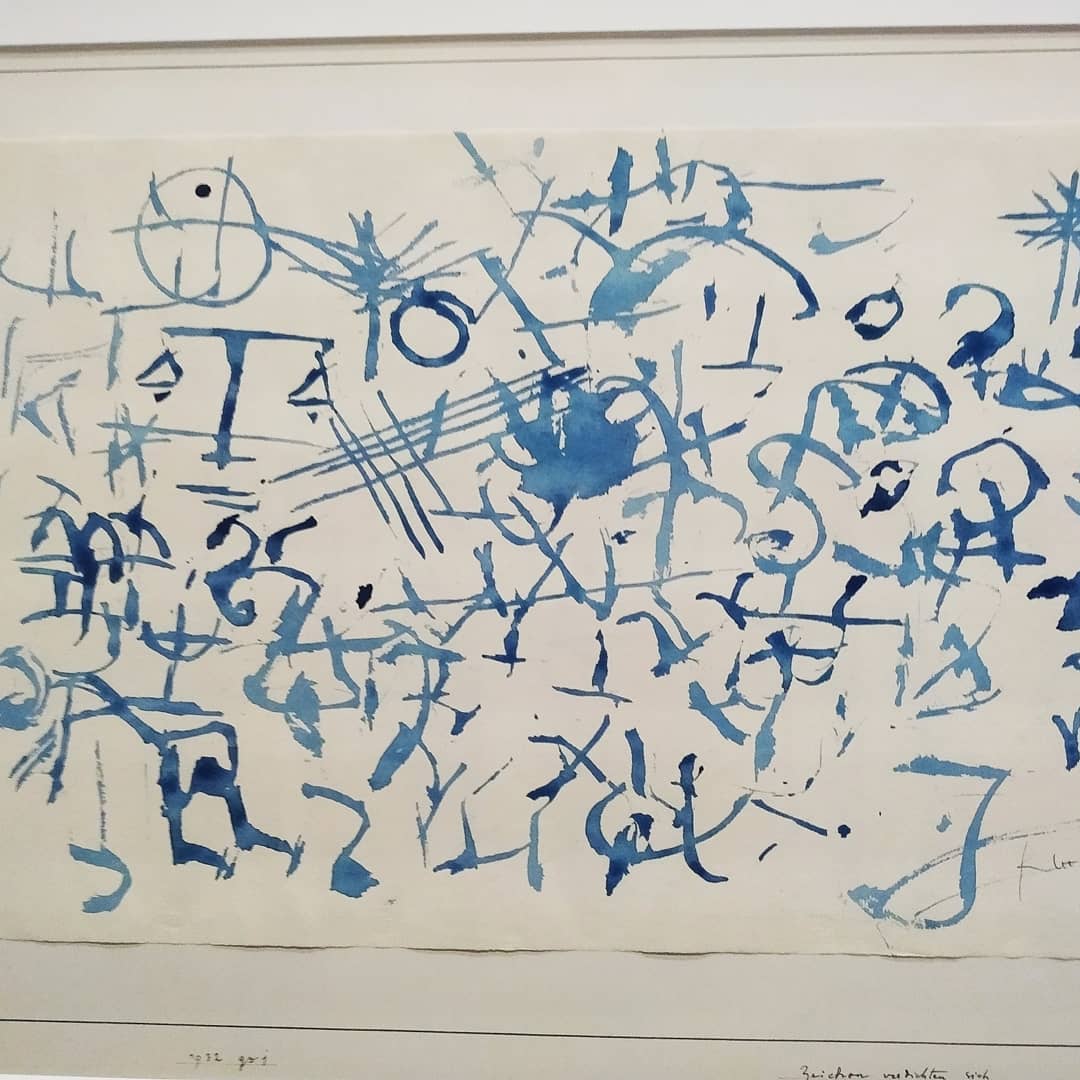 Klee
1932 qu 1
Zeichen verdichten sich